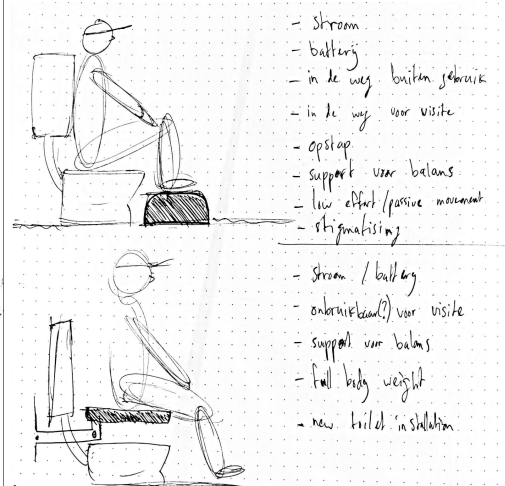 - stroom
- batterij
- in de weg buiten gebruik
- in de weg voor visite
- opstap
- support voor balans
- low effort/passive movement
- stigmatising
- stroom / battery
- onbruikbaar(?) voor visite
- support voor balans
- full body weight
- new toilet installation